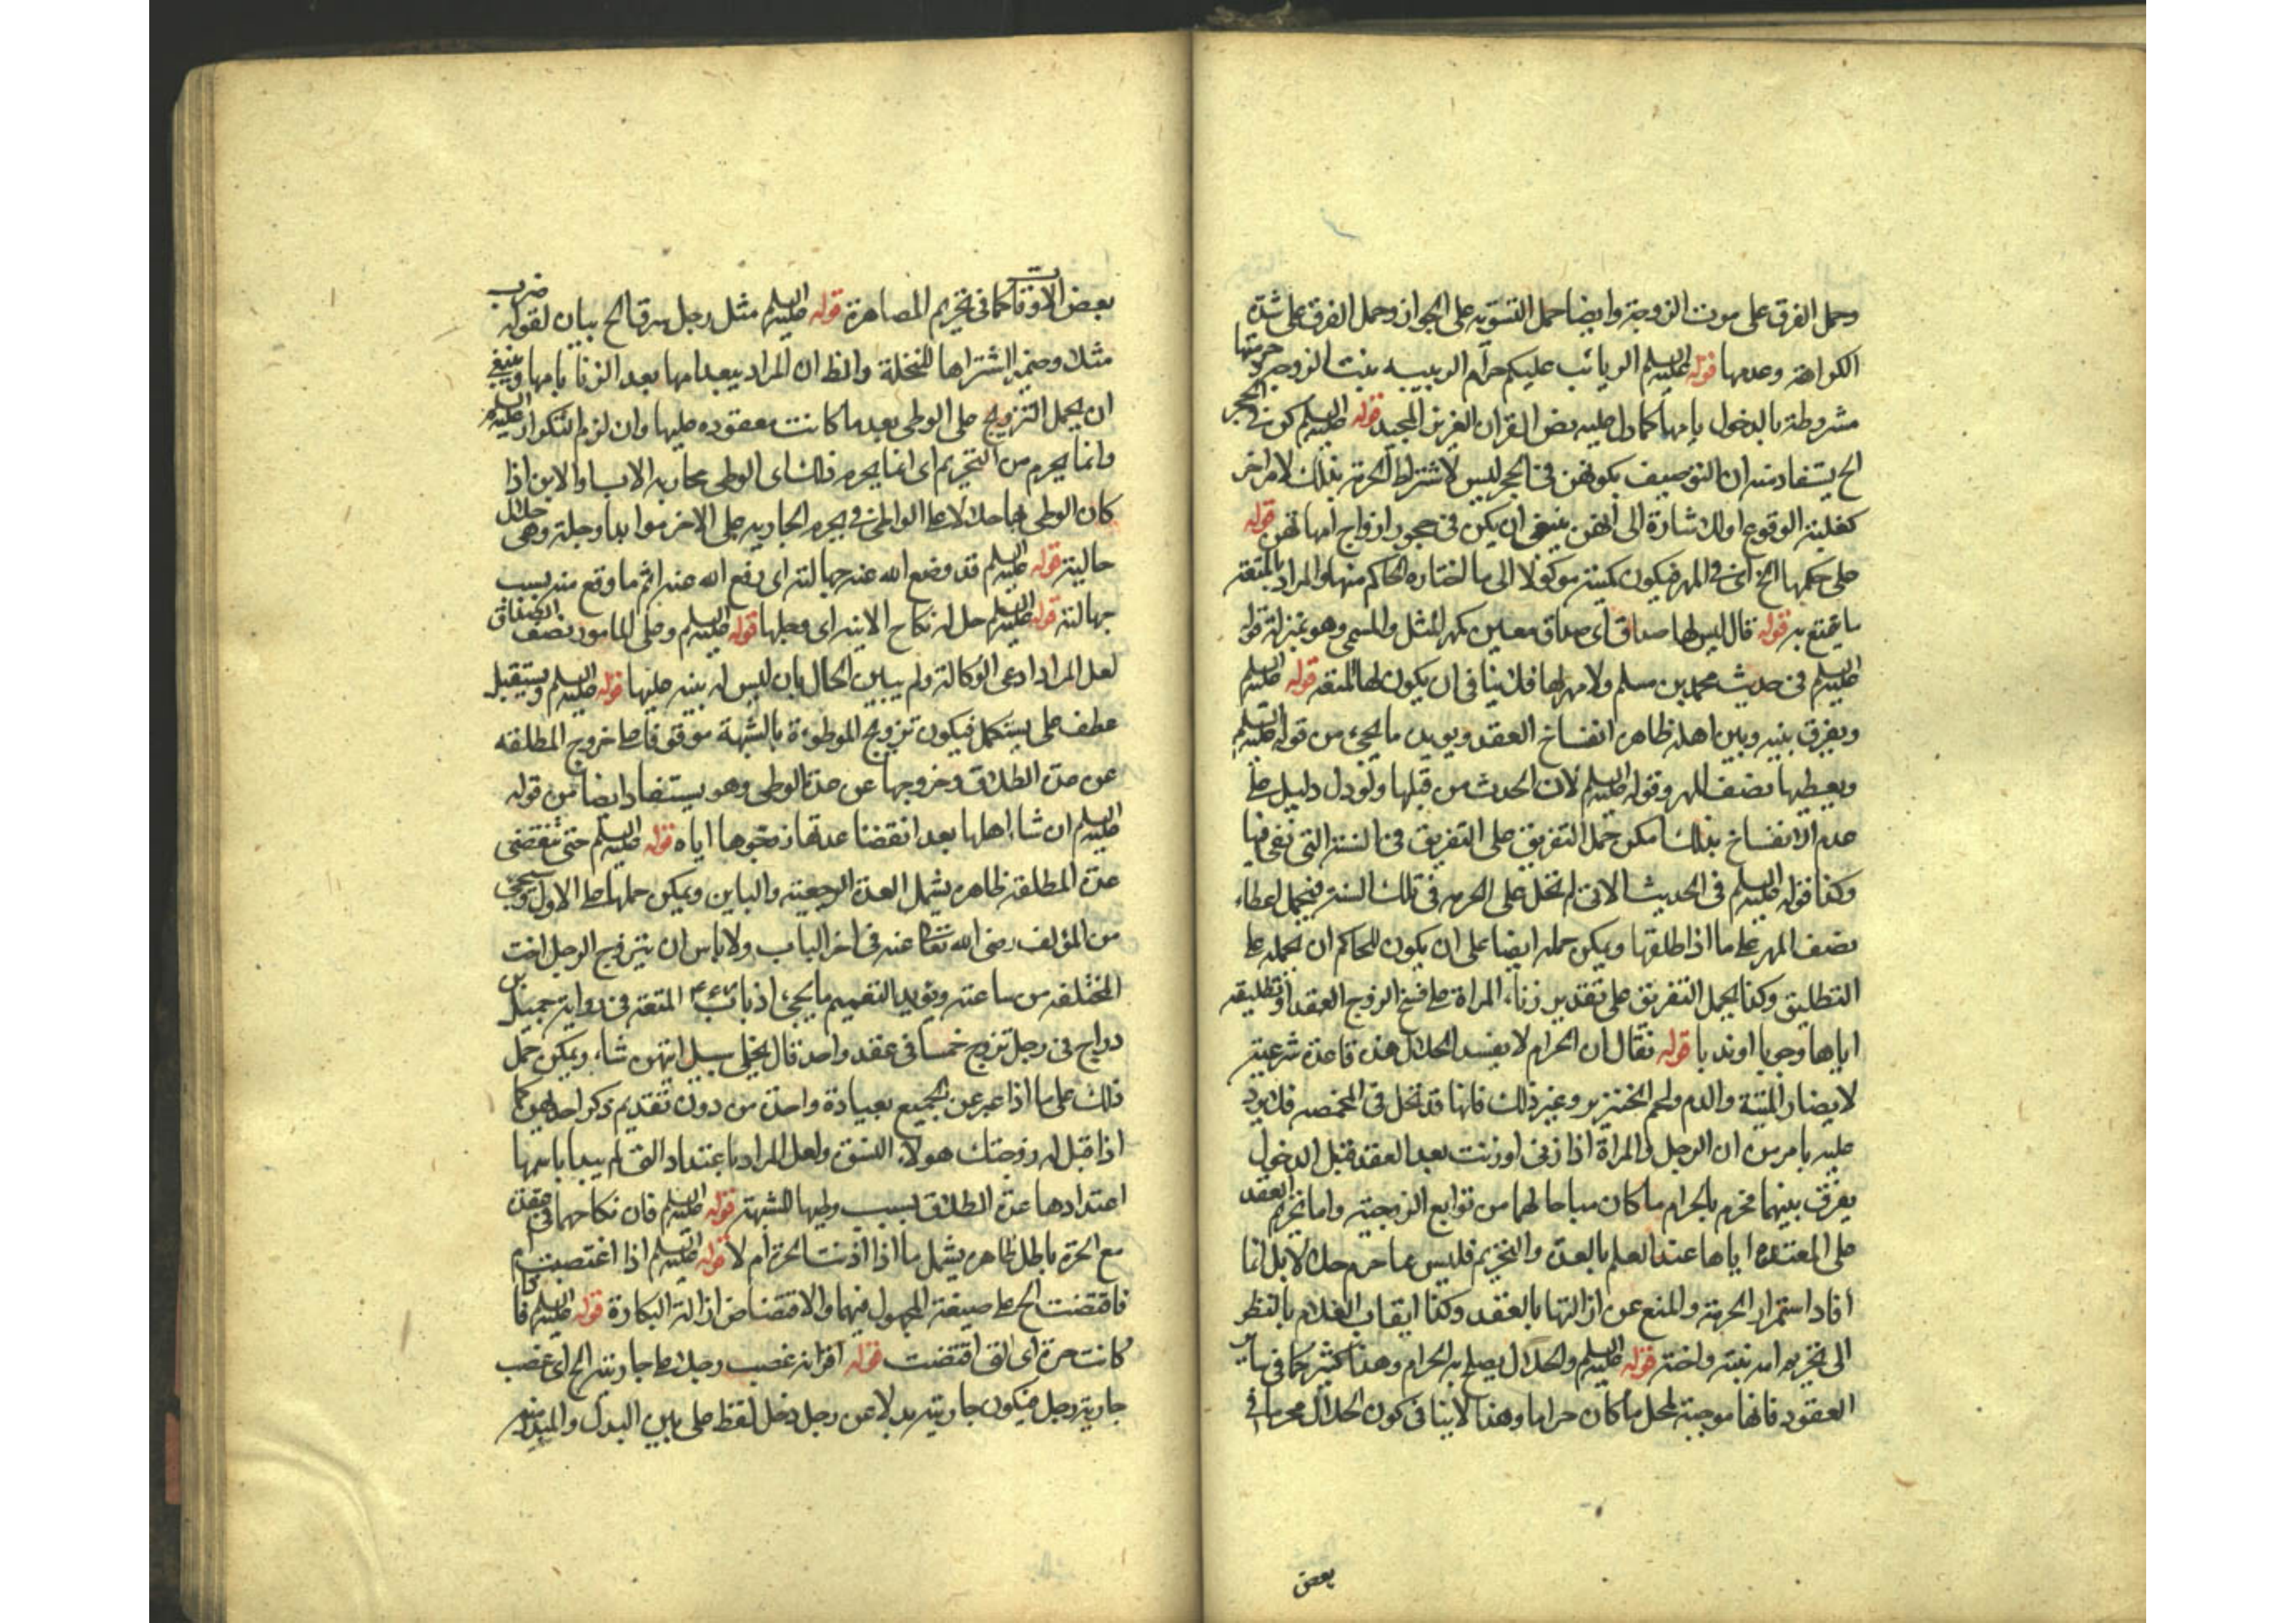 وحمل الفرق على موت الزوجة وايضا حمل التسويه على الجواز وحمل الفرق على شدة
الكراهة وعدمها قوله عليه السلم الربائب عليكم حرام الربيبه بنت الزوجة وحرمتها
مشروطة بالدخول بامها كما دل عليه نص القران العزيز المجيد قوله عليه السلم كون في الحجر
الخ يستفاد منه ان التوصيف بكونهن في الحجر ليس لاشتراط الحرمة بذلك لامر اخر
كغلبة الوقوع او الاشارة الى انهن ينبغي ان يكن في حجور ازواج امهاتهن قوله
على حكمها الخ اى في المهر فيكون كميته موكولا الى ما اختاره الحاكم منهما والمراد بالمتعة
ما تمتع به قوله قال ليس لها صداق اى صداق معين كمهر المثل والمسمى وهو بمنزلة قوله
عليه السلم فى حديث محمد بن مسلم ولا مهر لها فلا ينافى ان يكون لها المتعة قوله عليه السلم
ويفرق بينه وبين اهله ظاهره انفساخ العقد ويويده ما يجئ من قوله عليه السلم
ويعطيها نصف المهر وقوله عليه السلم لان الحدث من قبلها ولو دل دليل على
عدم الانفساخ بذلك امكن حمل التفريق على التفريق فى السنة التى نفى فيها
وكذا قوله عليه السلم فى الحديث الاتى لم تحل على الحرمه فى تلك السنة فيحمل اعطاء
نصف المهر على ما اذا طلقها ويمكن حمله ايضا على ان يكون للحاكم ان يحمله على
التطليق وكذا يحمل التفريق على تقدير زناء المراة على فسخ الزوج العقد او تطليقه
اياها وجوبا او ندبا قوله فقال ان الحرام لا يفسد الحلال هذه قاعدة شرعية
لا يضار الميتة والدم ولحم الخنزير وغير ذلك فانها قد تحل فى المخمصه فلا يرد
عليه ما مر من ان الرجل والمراة اذا زنى او زنت بعد العقد قبل الدخول
يفرق بينهما فحرم بالحرام ما كان مباحا لهما من توابع الزوجية واما تحريم العقد
على المعتدة اياها عند العلم بالعدة والتحريم فليس مما حرم حلالا بل انما
افاد استمرار الحرمة والمنع عن ازالتها بالعقد وكذا ايقاب الغلام بالنظر
الى تحريم امه بنته واخته قوله عليه السلم والحلال يصلح به الحرام وهذا كثير كما فى
العقود فانها موجبة لحل ما كان حراما وهذا لا ينافى كون الحلال محرما فى
بعض
بعض الاوقات كما فى تحريم المصاهرة قوله عليه السلم مثل رجل سرق الخ بيان لقوله ضرب
مثلا وضمير اشتراها للنخلة والظ ان المراد ببعدامها بعد الزنا بامها وينبغي
ان يحمل التزويج على الوطى بعد ما كانت معقوده عليها وان لزم التكرار عليه السلم
وانما يحرم من التحريم اى انما يحرم ذلك اى الوطى بجاريه الاب او الابن اذا
كان الوطى مباحا حلالا على الواطى فيحرم الجاريه على الاخر موابدا وجملة وهى حلال
حالية قوله عليه السلم قد وضع الله عنه جهالته اى رفع الله عنه اثم ما وقع منه بسبب
جهالته قوله عليه السلم حل له نكاح الابنه اى وطيها قوله عليه السلم وعلى المامور نصف الصداق
لعل المراد ادعى الوكالة ولم يبين الحال بان ليس له بينه عليها قوله عليه السلم ويستقبل
عطف على يستكمل فيكون تزويج الموطوءة بالشبهة موقوفا على خروج المطلقه
عن عدة الطلاق وخروجها عن عدة الوطى وهو يستفاد ايضا من قوله
عليه السلم ان شاء اهلها بعد انقضاء عدتها زوجوها اياه قوله عليه السلم حتى تنقضى
عدة المطلقة ظاهره يشمل العدة الرجعية والباين ويمكن حملها على الاول وسيجئ
من المؤلف رضى الله تعالى عنه فى اخر الباب ولا باس ان يتزوج الرجل اخت
المختلعه من ساعته ويؤيد التعميم ما يجئ المتعة فى رواية جميل بن
دراج فى رجل تزوج خمسا فى عقد واحد قال يخلى سبيل ايتهن شاء ويمكن حمل
ذلك على ما اذا عبر عن الجميع بعبارة واحدة من دون تقديم ذكر احديهن كما
اذا قيل له زوجتك هولاء النسوة ولعل المراد باعتداد التى لم يبدا باسمها
اعتدادها عدة الطلاق بسبب وطيها للشبهة قوله عليه السلم فان نكاحهما فى عقدة
مع الحرة باطل ظاهره يشمل ما اذا اذنت الحرة ام لا قوله عليه السلم اذا اغتصبت
فاقتضت الخ على صيغة المجهول فيهما والاقتضاض ازالة البكارة قوله عليه السلم فاذا
كانت حرة اى التى اقتضت قوله اقر انه غصب رجلا على جاريته الخ اى غصب
جارية رجل فيكون جاريته بدلا عن رجل دخل لفظ على بين البدل والمبدل منه